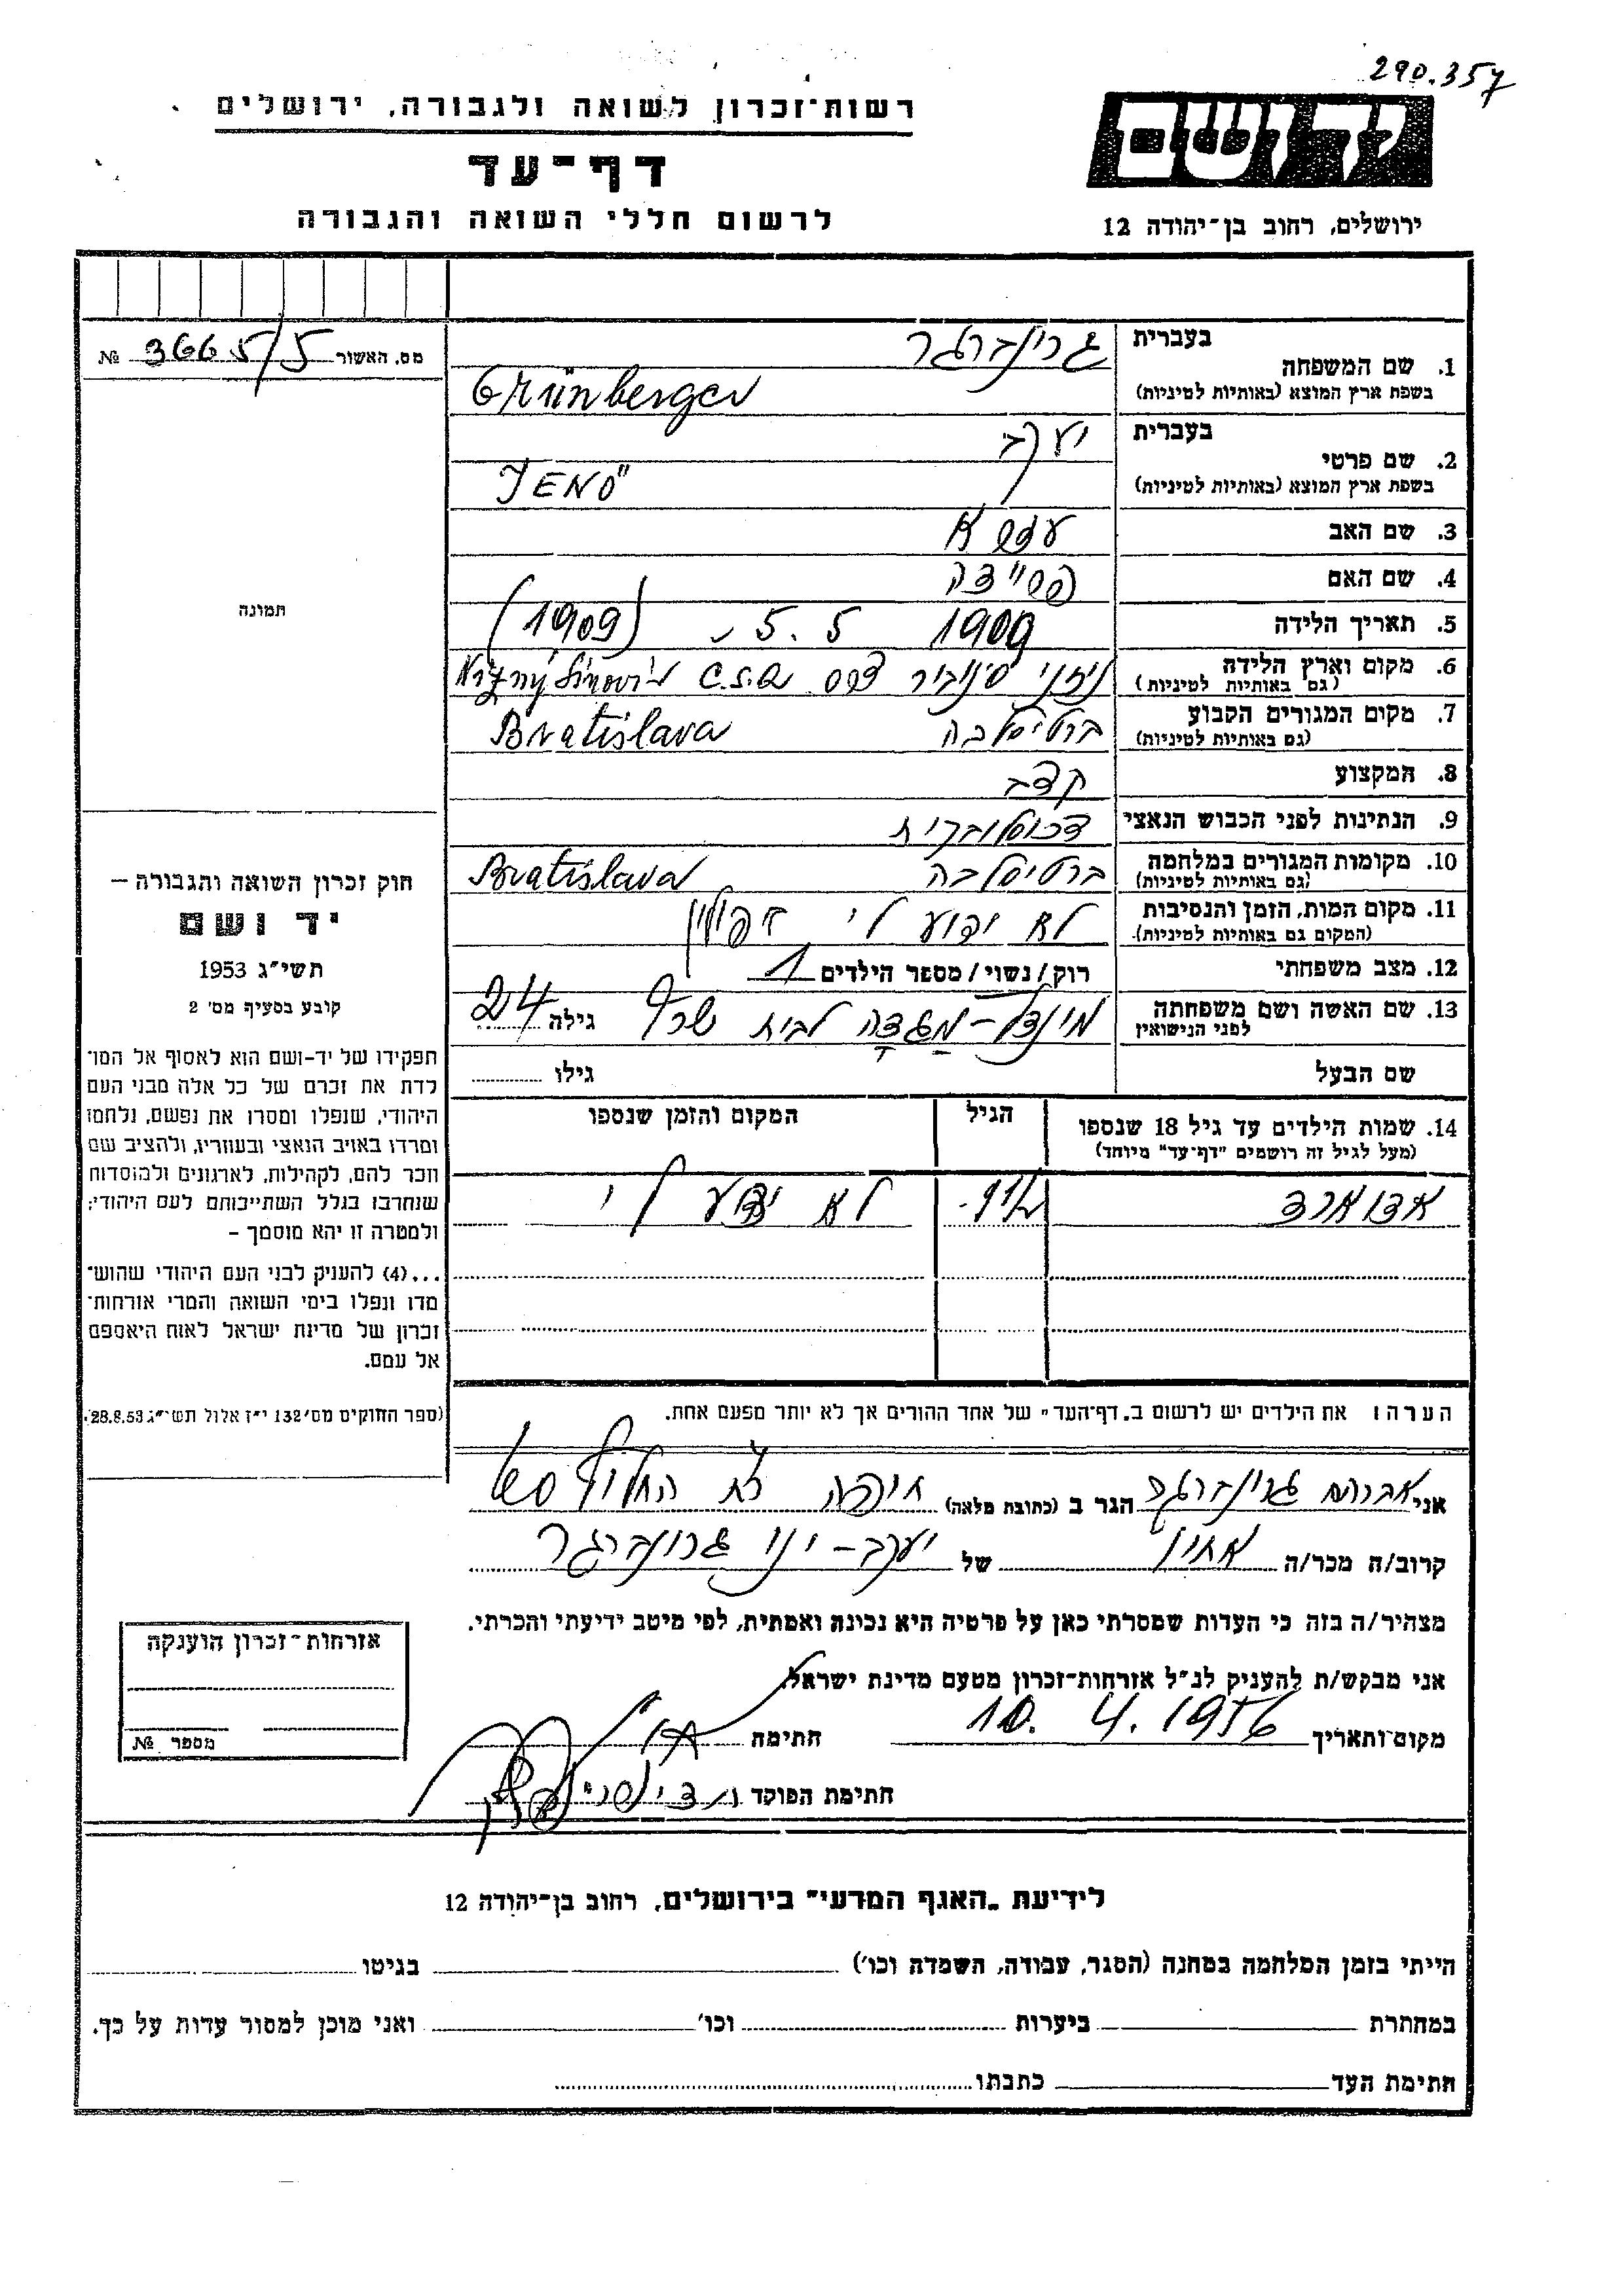 290.357
רשות־זכרון לשואה ולגבורה, ירושלים
דף־עד
לרשום חללי השואה והגבורה
יד ושם
ירושלים, רחוב בן־יהודה 12
מס. האשור 3665/5 №
תמונה
חוק זכרון השואה והגבורה –
יד ושם
תשי״ג 1953
קובע בסעיף מס׳ 2
תפקידו של יד־ושם הוא לאסוף אל המו־
לדת את זכרם של כל אלה מבני העם
היהודי, שנפלו ומסרו את נפשם, נלחמו
ומרדו באויב הנאצי ובעוזריו, ולהציב שם
וזכר להם, לקהילות, לארגונים ולמוסדות
שנחרבו בגלל השתייכותם לעם היהודי;
ולמטרה זו יהא מוסמך –
...(4) להעניק לבני העם היהודי שהוש־
מדו ונפלו בימי השואה והמרי אזרחות־
זכרון של מדינת ישראל לאות היאספם
אל עמם.
(ספר החוקים מס׳ 132 י״ז אלול תשי״ג 28.8.53)
בעברית גרינברגר
1. שם המשפחה
בשפת ארץ המוצא (באותיות לטיניות) Grünberger
בעברית יעקב
2. שם פרטי
בשפת ארץ המוצא (באותיות לטיניות) JENÖ
3. שם האב
4. שם האם
5. תאריך הלידה 1909 5.5 (1909)
6. מקום וארץ הלידה
(גם באותיות לטיניות)
7. מקום המגורים הקבוע ברטיסלבה Bratislava
(גם באותיות לטיניות)
8. המקצוע קצב
9. הנתינות לפני הכבוש הנאצי
10. מקומות המגורים במלחמה ברטיסלבה Bratislava
(גם באותיות לטיניות)
11. מקום המות, הזמן והנסיבות לא ידוע לי
(המקום גם באותיות לטיניות)
12. מצב משפחתי רוק/נשוי/מספר הילדים 1
13. שם האשה ושם משפחתה מינדל–מגדה לבית גילה 24
לפני הנישואין
שם הבעל גילו
14. שמות הילדים עד גיל 18 שנספו הגיל המקום והזמן שנספו
(מעל לגיל זה רושמים "דף־עד" מיוחד)
אדוארד לא ידוע לי
הערה: את הילדים יש לרשום ב„דף־העד״ של אחד ההורים אך לא יותר מפעם אחת.
אני אברהם גרינברגר הגר ב (כתובת מלאה) חיפה
קרוב/ה מכר/ה אחיו של יעקב – ינו גרונברגר
מצהיר/ה בזה כי העדות שמסרתי כאן על פרטיה היא נכונה ואמתית, לפי מיטב ידיעתי והכרתי.
אני מבקש/ת להעניק לנ״ל אזרחות־זכרון מטעם מדינת ישראל.
מקום ותאריך 10. 4. 1956 חתימה
חתימת הפוקד
אזרחות־זכרון הוענקה
מספר №
לידיעת „האגף המדעי״ בירושלים, רחוב בן־יהודה 12
הייתי בזמן המלחמה במחנה (הסגר, עבודה, השמדה וכו׳) בגיטו
במחתרת ביערות וכו׳ ואני מוכן למסור עדות על כך.
חתימת העד כתבתו